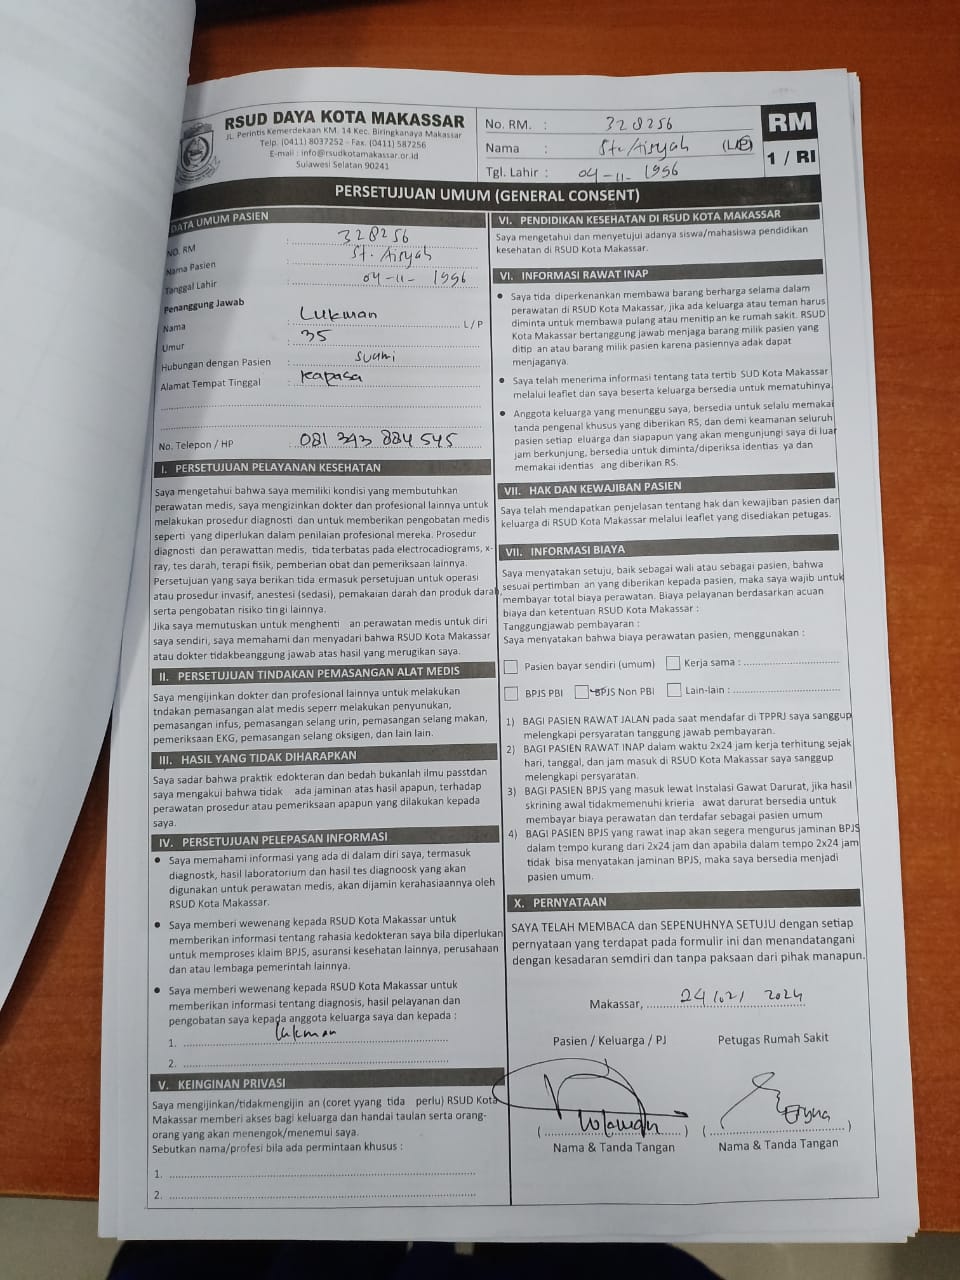 RSUD DAYA KOTA MAKASSAR
JL. Perintis Kemerdekaan KM. 14 Kec. Biringkanaya Makassar
Telp. (0411) 8037252 - Fax. (0411) 587256
E-mail : info@rsudkotamakassar.or.id
Sulawesi Selatan 90241
No. RM. : 328256
Nama : St. Aisyah
Tgl. Lahir : 04-11-1996
RM
1 / RI
PERSETUJUAN UMUM (GENERAL CONSENT)
DATA UMUM PASIEN
NO. RM : 328256
Nama Pasien : St. Aisyah
Tanggal Lahir : 04-11-1996
Penanggung Jawab
Nama : Lukman L / P
Umur : 35
Hubungan dengan Pasien : Suami
Alamat Tempat Tinggal : Kapasa
No. Telepon / HP : 081 343 884 545
I. PERSETUJUAN PELAYANAN KESEHATAN
Saya mengetahui bahwa saya memiliki kondisi yang membutuhkan
perawatan medis, saya mengizinkan dokter dan profesional lainnya untuk
melakukan prosedur diagnosti dan untuk memberikan pengobatan medis
seperti yang diperlukan dalam penilaian profesional mereka. Prosedur
diagnosti dan perawattan medis, tida terbatas pada electrocadiograms, x-
ray, tes darah, terapi fisik, pemberian obat dan pemeriksaan lainnya.
Persetujuan yang saya berikan tida ermasuk persetujuan untuk operasi
atau prosedur invasif, anestesi (sedasi), pemakaian darah dan produk darah,
serta pengobatan risiko tin gi lainnya.
Jika saya memutuskan untuk menghenti an perawatan medis untuk diri
saya sendiri, saya memahami dan menyadari bahwa RSUD Kota Makassar
atau dokter tidakbeanggung jawab atas hasil yang merugikan saya.
II. PERSETUJUAN TINDAKAN PEMASANGAN ALAT MEDIS
Saya mengijinkan dokter dan profesional lainnya untuk melakukan
tndakan pemasangan alat medis seperr melakukan penyunukan,
pemasangan infus, pemasangan selang urin, pemasangan selang makan,
pemeriksaan EKG, pemasangan selang oksigen, dan lain lain.
III. HASIL YANG TIDAK DIHARAPKAN
Saya sadar bahwa praktik edokteran dan bedah bukanlah ilmu passtdan
saya mengakui bahwa tidak ada jaminan atas hasil apapun, terhadap
perawatan prosedur atau pemeriksaan apapun yang dilakukan kepada
saya.
IV. PERSETUJUAN PELEPASAN INFORMASI
• Saya memahami informasi yang ada di dalam diri saya, termasuk
diagnostk, hasil laboratorium dan hasil tes diagnoosk yang akan
digunakan untuk perawatan medis, akan dijamin kerahasiaannya oleh
RSUD Kota Makassar.
• Saya memberi wewenang kepada RSUD Kota Makassar untuk
memberikan informasi tentang rahasia kedokteran saya bila diperlukan
untuk memproses klaim BPJS, asuransi kesehatan lainnya, perusahaan
dan atau lembaga pemerintah lainnya.
• Saya memberi wewenang kepada RSUD Kota Makassar untuk
memberikan informasi tentang diagnosis, hasil pelayanan dan
pengobatan saya kepada anggota keluarga saya dan kepada :
1. Lukman
2.
V. KEINGINAN PRIVASI
Saya mengijinkan/tidakmengijin an (coret yyang tida perlu) RSUD Kota
Makassar memberi akses bagi keluarga dan handai taulan serta orang-
orang yang akan menengok/menemui saya.
Sebutkan nama/profesi bila ada permintaan khusus :
1.
2.
VI. PENDIDIKAN KESEHATAN DI RSUD KOTA MAKASSAR
Saya mengetahui dan menyetujui adanya siswa/mahasiswa pendidikan
kesehatan di RSUD Kota Makassar.
VI. INFORMASI RAWAT INAP
• Saya tida diperkenankan membawa barang berharga selama dalam
perawatan di RSUD Kota Makassar, jika ada keluarga atau teman harus
diminta untuk membawa pulang atau menitip an ke rumah sakit. RSUD
Kota Makassar bertanggung jawab menjaga barang milik pasien yang
ditip an atau barang milik pasien karena pasiennya adak dapat
menjaganya.
• Saya telah menerima informasi tentang tata tertib SUD Kota Makassar
melalui leaflet dan saya beserta keluarga bersedia untuk mematuhinya
• Anggota keluarga yang menunggu saya, bersedia untuk selalu memakai
tanda pengenal khusus yang diberikan RS, dan demi keamanan seluruh
pasien setiap eluarga dan siapapun yang akan mengunjungi saya di luar
jam berkunjung, bersedia untuk diminta/diperiksa identias ya dan
memakai identias ang diberikan RS.
VII. HAK DAN KEWAJIBAN PASIEN
Saya telah mendapatkan penjelasan tentang hak dan kewajiban pasien dan
keluarga di RSUD Kota Makassar melalui leaflet yang disediakan petugas.
VII. INFORMASI BIAYA
Saya menyatakan setuju, baik sebagai wali atau sebagai pasien, bahwa
sesuai pertimban an yang diberikan kepada pasien, maka saya wajib untuk
membayar total biaya perawatan. Biaya pelayanan berdasarkan acuan
biaya dan ketentuan RSUD Kota Makassar :
Tanggungjawab pembayaran :
Saya menyatakan bahwa biaya perawatan pasien, menggunakan :
Pasien bayar sendiri (umum) Kerja sama :
BPJS PBI BPJS Non PBI Lain-lain :
1) BAGI PASIEN RAWAT JALAN pada saat mendafar di TPPRJ saya sanggup
melengkapi persyaratan tanggung jawab pembayaran.
2) BAGI PASIEN RAWAT INAP dalam waktu 2x24 jam kerja terhitung sejak
hari, tanggal, dan jam masuk di RSUD Kota Makassar saya sanggup
melengkapi persyaratan.
3) BAGI PASIEN BPJS yang masuk lewat Instalasi Gawat Darurat, jika hasil
skrining awal tidakmemenuhi krieria awat darurat bersedia untuk
membayar biaya perawatan dan terdafar sebagai pasien umum
4) BAGI PASIEN BPJS yang rawat inap akan segera mengurus jaminan BPJS
dalam tempo kurang dari 2x24 jam dan apabila dalam tempo 2x24 jam
tidak bisa menyatakan jaminan BPJS, maka saya bersedia menjadi
pasien umum.
X. PERNYATAAN
SAYA TELAH MEMBACA dan SEPENUHNYA SETUJU dengan setiap
pernyataan yang terdapat pada formulir ini dan menandatangani
dengan kesadaran semdiri dan tanpa paksaan dari pihak manapun.
Makassar, 24/02/2024
Pasien / Keluarga / PJ Petugas Rumah Sakit
Nama & Tanda Tangan Nama & Tanda Tangan